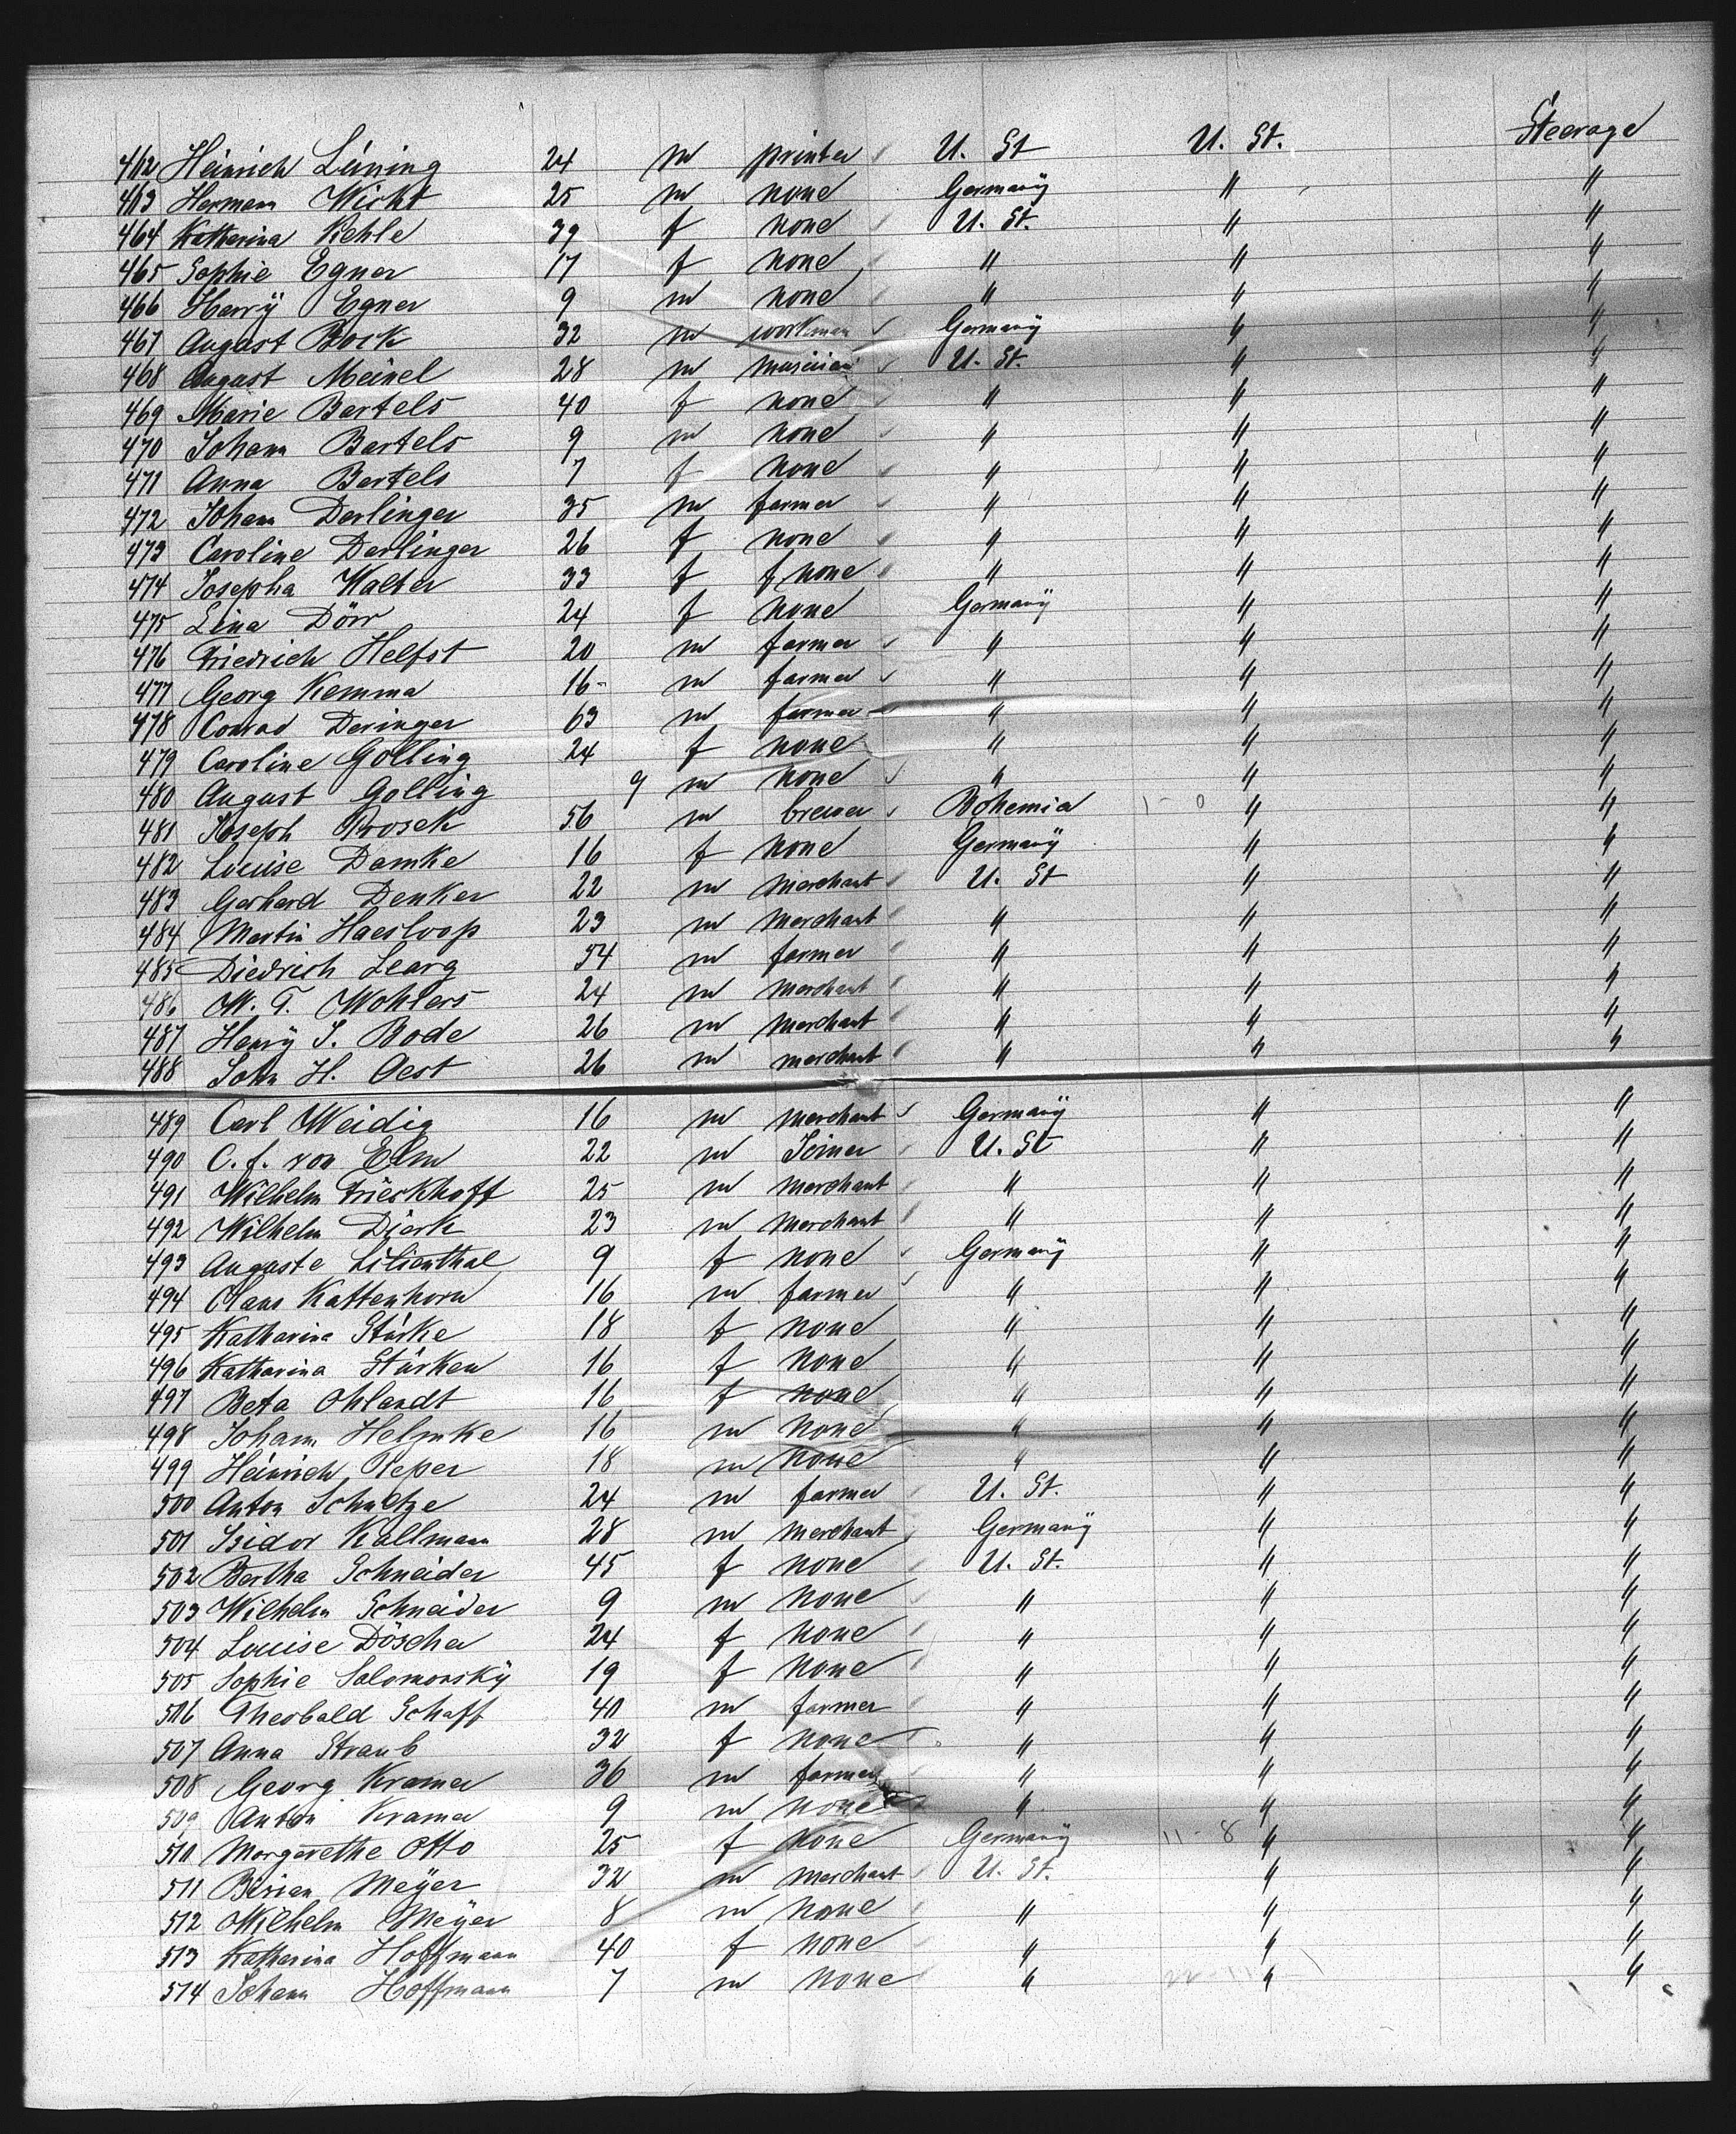 462 Heinrich Lüning 24 m printer U. St U. St. Steerage
463 Hermann Wicht 25 m none Germany " "
464 Katharina Kehle 39 f none U. St. " "
465 Sophie Egner 17 f none " " "
466 Harry Egner 9 m none " " "
467 August Bock 32 m workman Germany " "
468 August Meinel 28 m musician U. St. " "
469 Marie Bartels 40 f none " " "
470 Johann Bartels 9 m none " " "
471 Anna Bartels 7 f none " " "
472 Johann Derlinger 35 m farmer " " "
473 Caroline Derlinger 26 f none " " "
474 Josepha Walter 33 f f none " " "
475 Lina Dörr 24 f none Germany " "
476 Friedrich Helfst 20 m farmer " " "
477 Georg Kemma 16 m farmer " " "
478 Conrad Deringer 63 m farmer " " "
479 Caroline Golling 24 f none " " "
480 August Golling 9 m none " " "
481 Joseph Prosek 56 m brewer Bohemia 1 - 0 " "
482 Louise Damke 16 f none Germany " "
483 Gerhard Denker 22 m merchant U. St " "
484 Martin Haesloop 23 m merchant " " "
485 Diedrich Learg 54 m farmer " " "
486 W. T. Wohlers 24 m merchant " " "
487 Henry J. Bode 26 m merchant " " "
488 John H. Oest 26 m merchant " " "
489 Carl Weidig 16 m merchant Germany " "
490 C. f. von Elm 22 m Joiner U. St " "
491 Wilhelm Frieckhoff 25 m merchant " " "
492 Wilhelm Dierk 23 m merchant " " "
493 Auguste Lilienthal 9 f none Germany " "
494 Claus Kattenhorn 16 m farmer " " "
495 Katharina Stürke 18 f none " " "
496 Katharina Stürken 16 f none " " "
497 Beta Ohlandt 16 f none " " "
498 Johann Helmke 16 m none " " "
499 Heinrich Peper 18 m none " " "
500 Anton Schultze 24 m farmer U. St. " "
501 Isidor Kallmann 28 m merchant Germany " "
502 Bertha Schneider 45 f none U. St. " "
503 Wilhelm Schneider 9 m none " " "
504 Louise Döscher 24 f none " " "
505 Sophie Salomonsky 19 f none " " "
506 Theobald Schaff 40 m farmer " " "
507 Anna Straub 32 f none " " "
508 Georg Kramer 36 m farmer " " "
509 Anton Kramer 9 m none " " "
510 Margarethe Otto 25 f none Germany 11 - 8 " "
511 Meyer 32 m merchant U. St. " "
512 Wilhelm Meyer 8 m none " " "
513 Katharina Hoffmann 40 f none " " "
514 Johann Hoffmann 7 m none " 22 - 11 " "